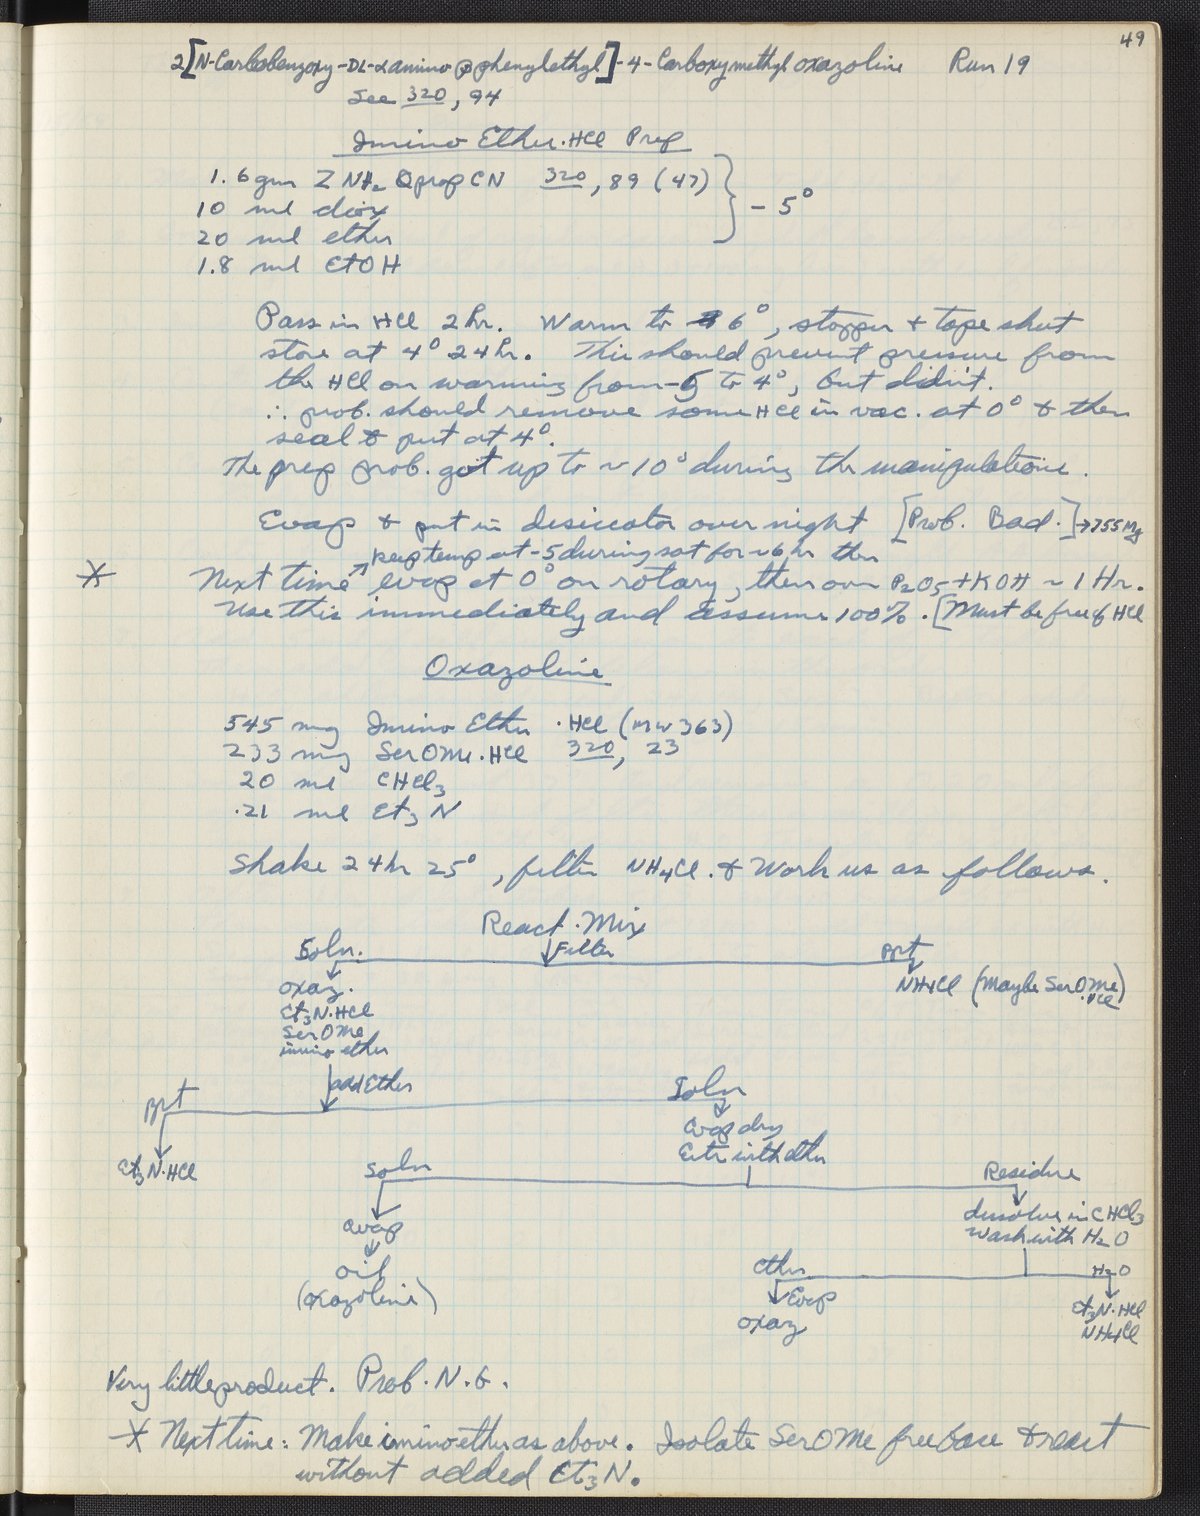 49
2[N-Carbobenzoxy-DL-αamino β phenylethyl]-4-Carboxymethyl oxazoline Run 19
See 320, 94
Imino Ether·HCl Prep
1.6 gm Z NH2 ΦpropCN 320, 89 (47)
10 ml diox
20 ml ether
1.8 ml EtOH
- 5°
Pass in HCl 2 hr. Warm to 6°, stopper & tape shut
store at 4° 24 hr. This should prevent pressure from
the HCl on warming from -5 to 4°, but didn't.
∴ prob. should remove some HCl in vac. at 0° & then
seal & put at 4°.
The prep prob. got up to ~10° during the manipulations.
Evap & put in desiccator over night [Prob. Bad.] → 755 mg
keep temp at -5 during sat for ~6 hr then
* Next time evap at 0° on rotary, then over P2O5 + KOH ~ 1 Hr.
Use this immediately and assume 100%. [Must be free of HCl
Oxazoline
545 mg Imino Ether ·HCl (MW 363)
233 mg SerOMe·HCl 320, 23
20 ml CHCl3
.21 ml Et3N
Shake 24 hr 25°, filter NH4Cl. & Work us as follows.
React. Mix
Filter
Soln. Ppt
oxaz. NH4Cl (Maybe SerOMe)
·HCl
Et3N·HCl
SerOMe
imino ether
add Ether
Ppt Soln
Evap dry
Et3N·HCl Extr with ether
Soln Residue
evap dissolve in CHCl3
Wash with H2O
oil ether H2O
(oxazoline) Evap Et3N·HCl
oxaz NH4Cl
Very little product. Prob. N.G.
* Next time: Make imino ether as above. Isolate SerOMe free base & react
without added Et3N.